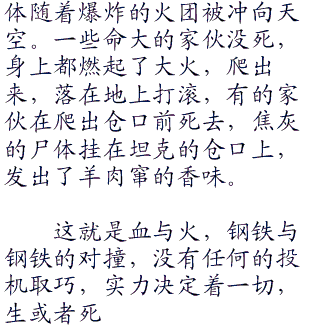 体随着爆炸的火团被冲向天
空。一些命大的家伙没死，
身上都燃起了大火，爬出
来，落在地上打滚，有的家
伙在爬出仓口前死去，焦灰
的尸体挂在坦克的仓口上，
发出了羊肉窜的香味。
这就是血与火，钢铁与
钢铁的对撞，没有任何的投
机取巧，实力决定着一切，
生或者死